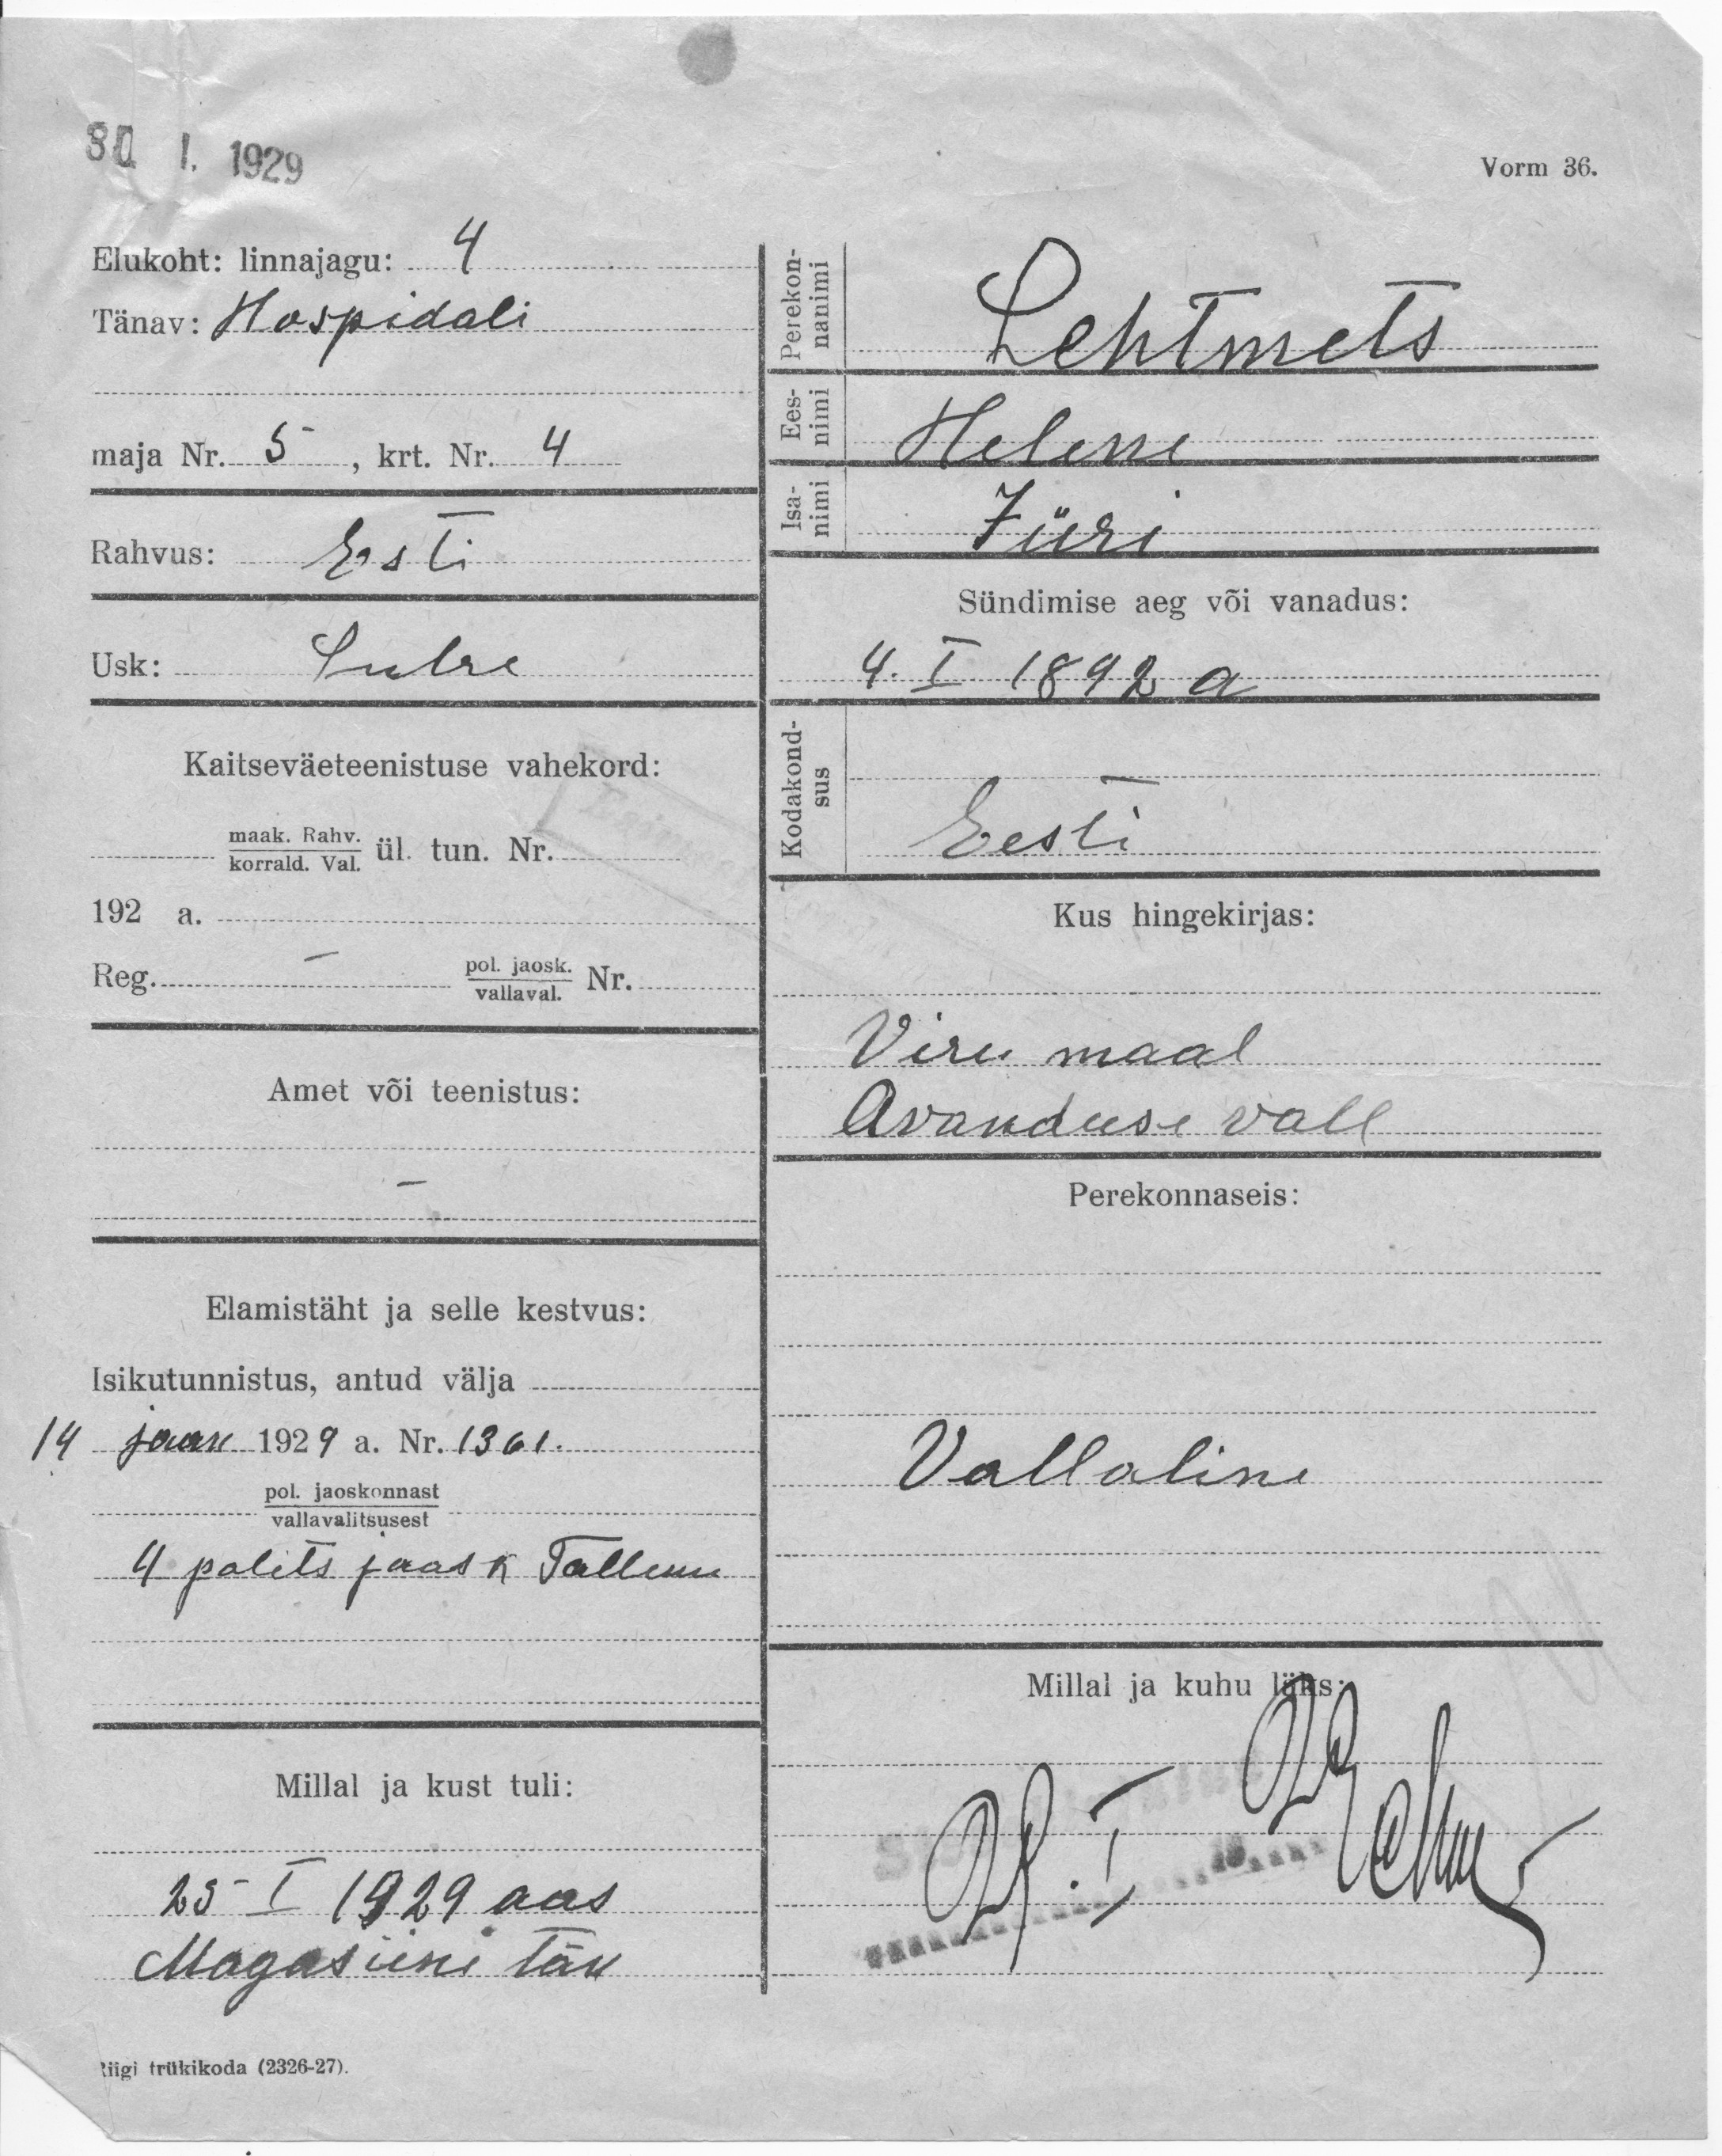 30. I. 1929
Vorm 36.
Elukoht: linnajagu: 4
Tänav: Hospidali
maja Nr. 5, krt. Nr. 4
Rahvus: Esti
Usk: Lutre
Kaitseväeteenistuse vahekord:
maak. Rahv.
korrald. Val. ül. tun. Nr.
192 a.
Reg. — pol. jaosk.
vallaval. Nr.
Amet või teenistus:
—
Elamistäht ja selle kestvus:
Isikutunnistus, antud välja
14 jaan 1929 a. Nr. 1361.
pol. jaoskonnast
vallavalitsusest
4 polits jaosk Tallinn
Millal ja kust tuli:
25 I 1929 aas
Magasiini tän
Riigi trükikoda (2326-27).
Perekon-
nanimi
Lehtmets
Ees-
nimi
Helene
Isa-
nimi
Jüri
Sündimise aeg või vanadus:
4. I 1892 a
Kodakond-
sus
Eesti
Kus hingekirjas:
Viru maal
Avanduse vall
Perekonnaseis:
Vallaline
Millal ja kuhu läks: